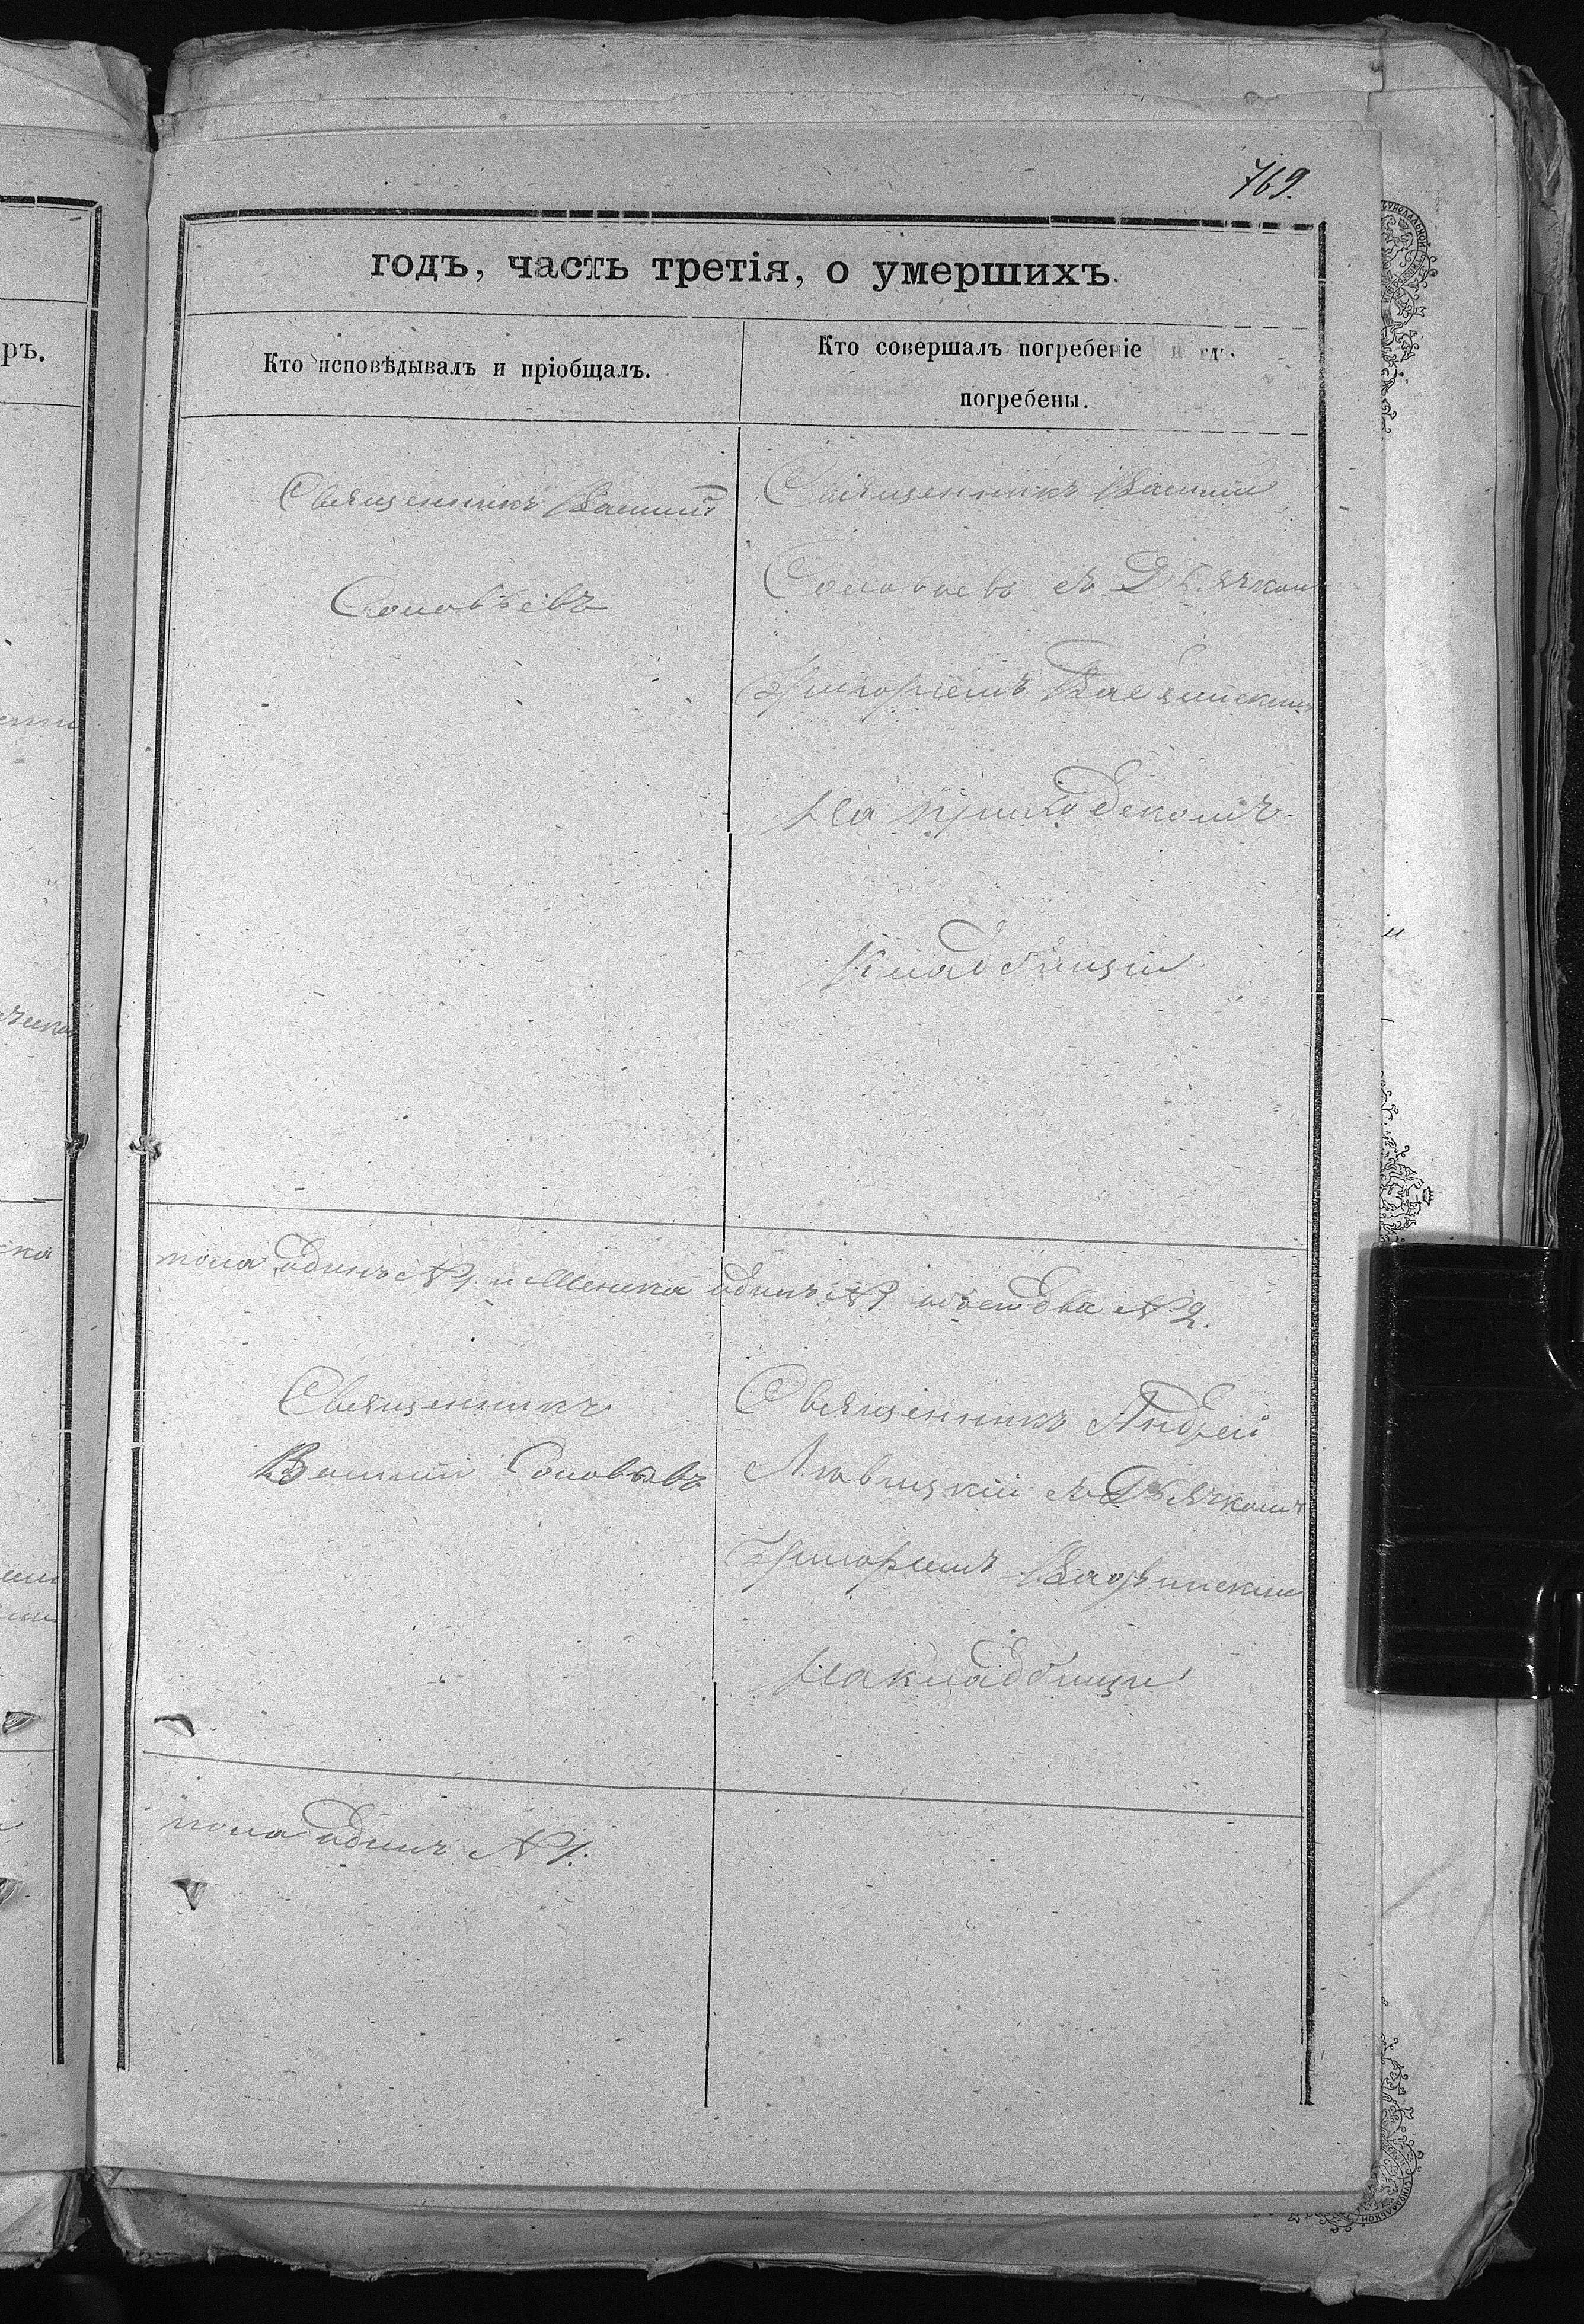 769.
годъ, часть третія, о умершихъ.
Кто исповѣдывалъ и пріобщалъ.
Кто совершалъ погребеніе и гдѣ
погребены.
Священникъ Василій
Соловьевъ
Священникъ Василій
Соловьевъ съ Дьячкомъ
Григоріемъ
на приходскомъ
кладбищѣ
пола одинъ № 1 и Женска одинъ № 1 обоего два № 2.
Священникъ
Василій Соловьевъ
Священникъ Андрей
съ Дьячкомъ
Григоріемъ
на кладбищѣ
пола одинъ № 1.